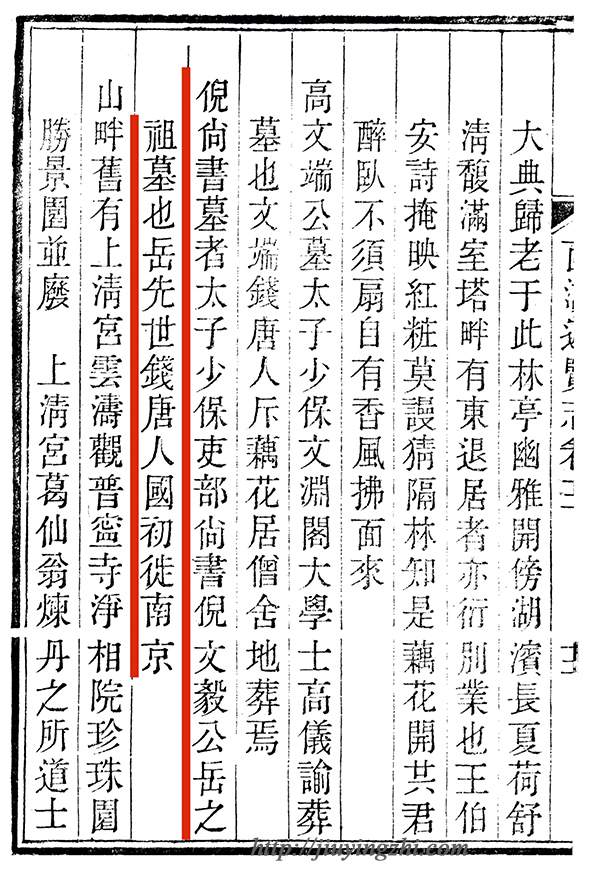 大典歸老于此林亭幽雅開傍湖濱長夏荷舒
清馥滿室塔畔有東退居者亦衍別業也王伯
安詩掩映紅粧莫謾猜隔林知是藕花開共君
醉臥不須扇自有香風拂面來
高文端公墓太子少保文淵閣大學士高儀諭葬
墓也文端錢唐人斥藕花居僧舍地葬焉
倪尚書墓者太子少保吏部尚書倪文毅公岳之
祖墓也岳先世錢唐人國初徙南京
山畔舊有上清宮雲濤觀普寍寺淨相院珍珠園
勝景園並廢　上清宮葛仙翁煉丹之所道士
http://jiuyingzhi.com